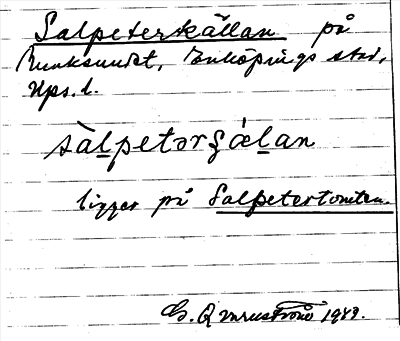 Salpeterkällan på
Munksundet, Enköpings stad,
Upsl.
sàlpetərʂǽlan
ligger på Salpetertomten.
1943.